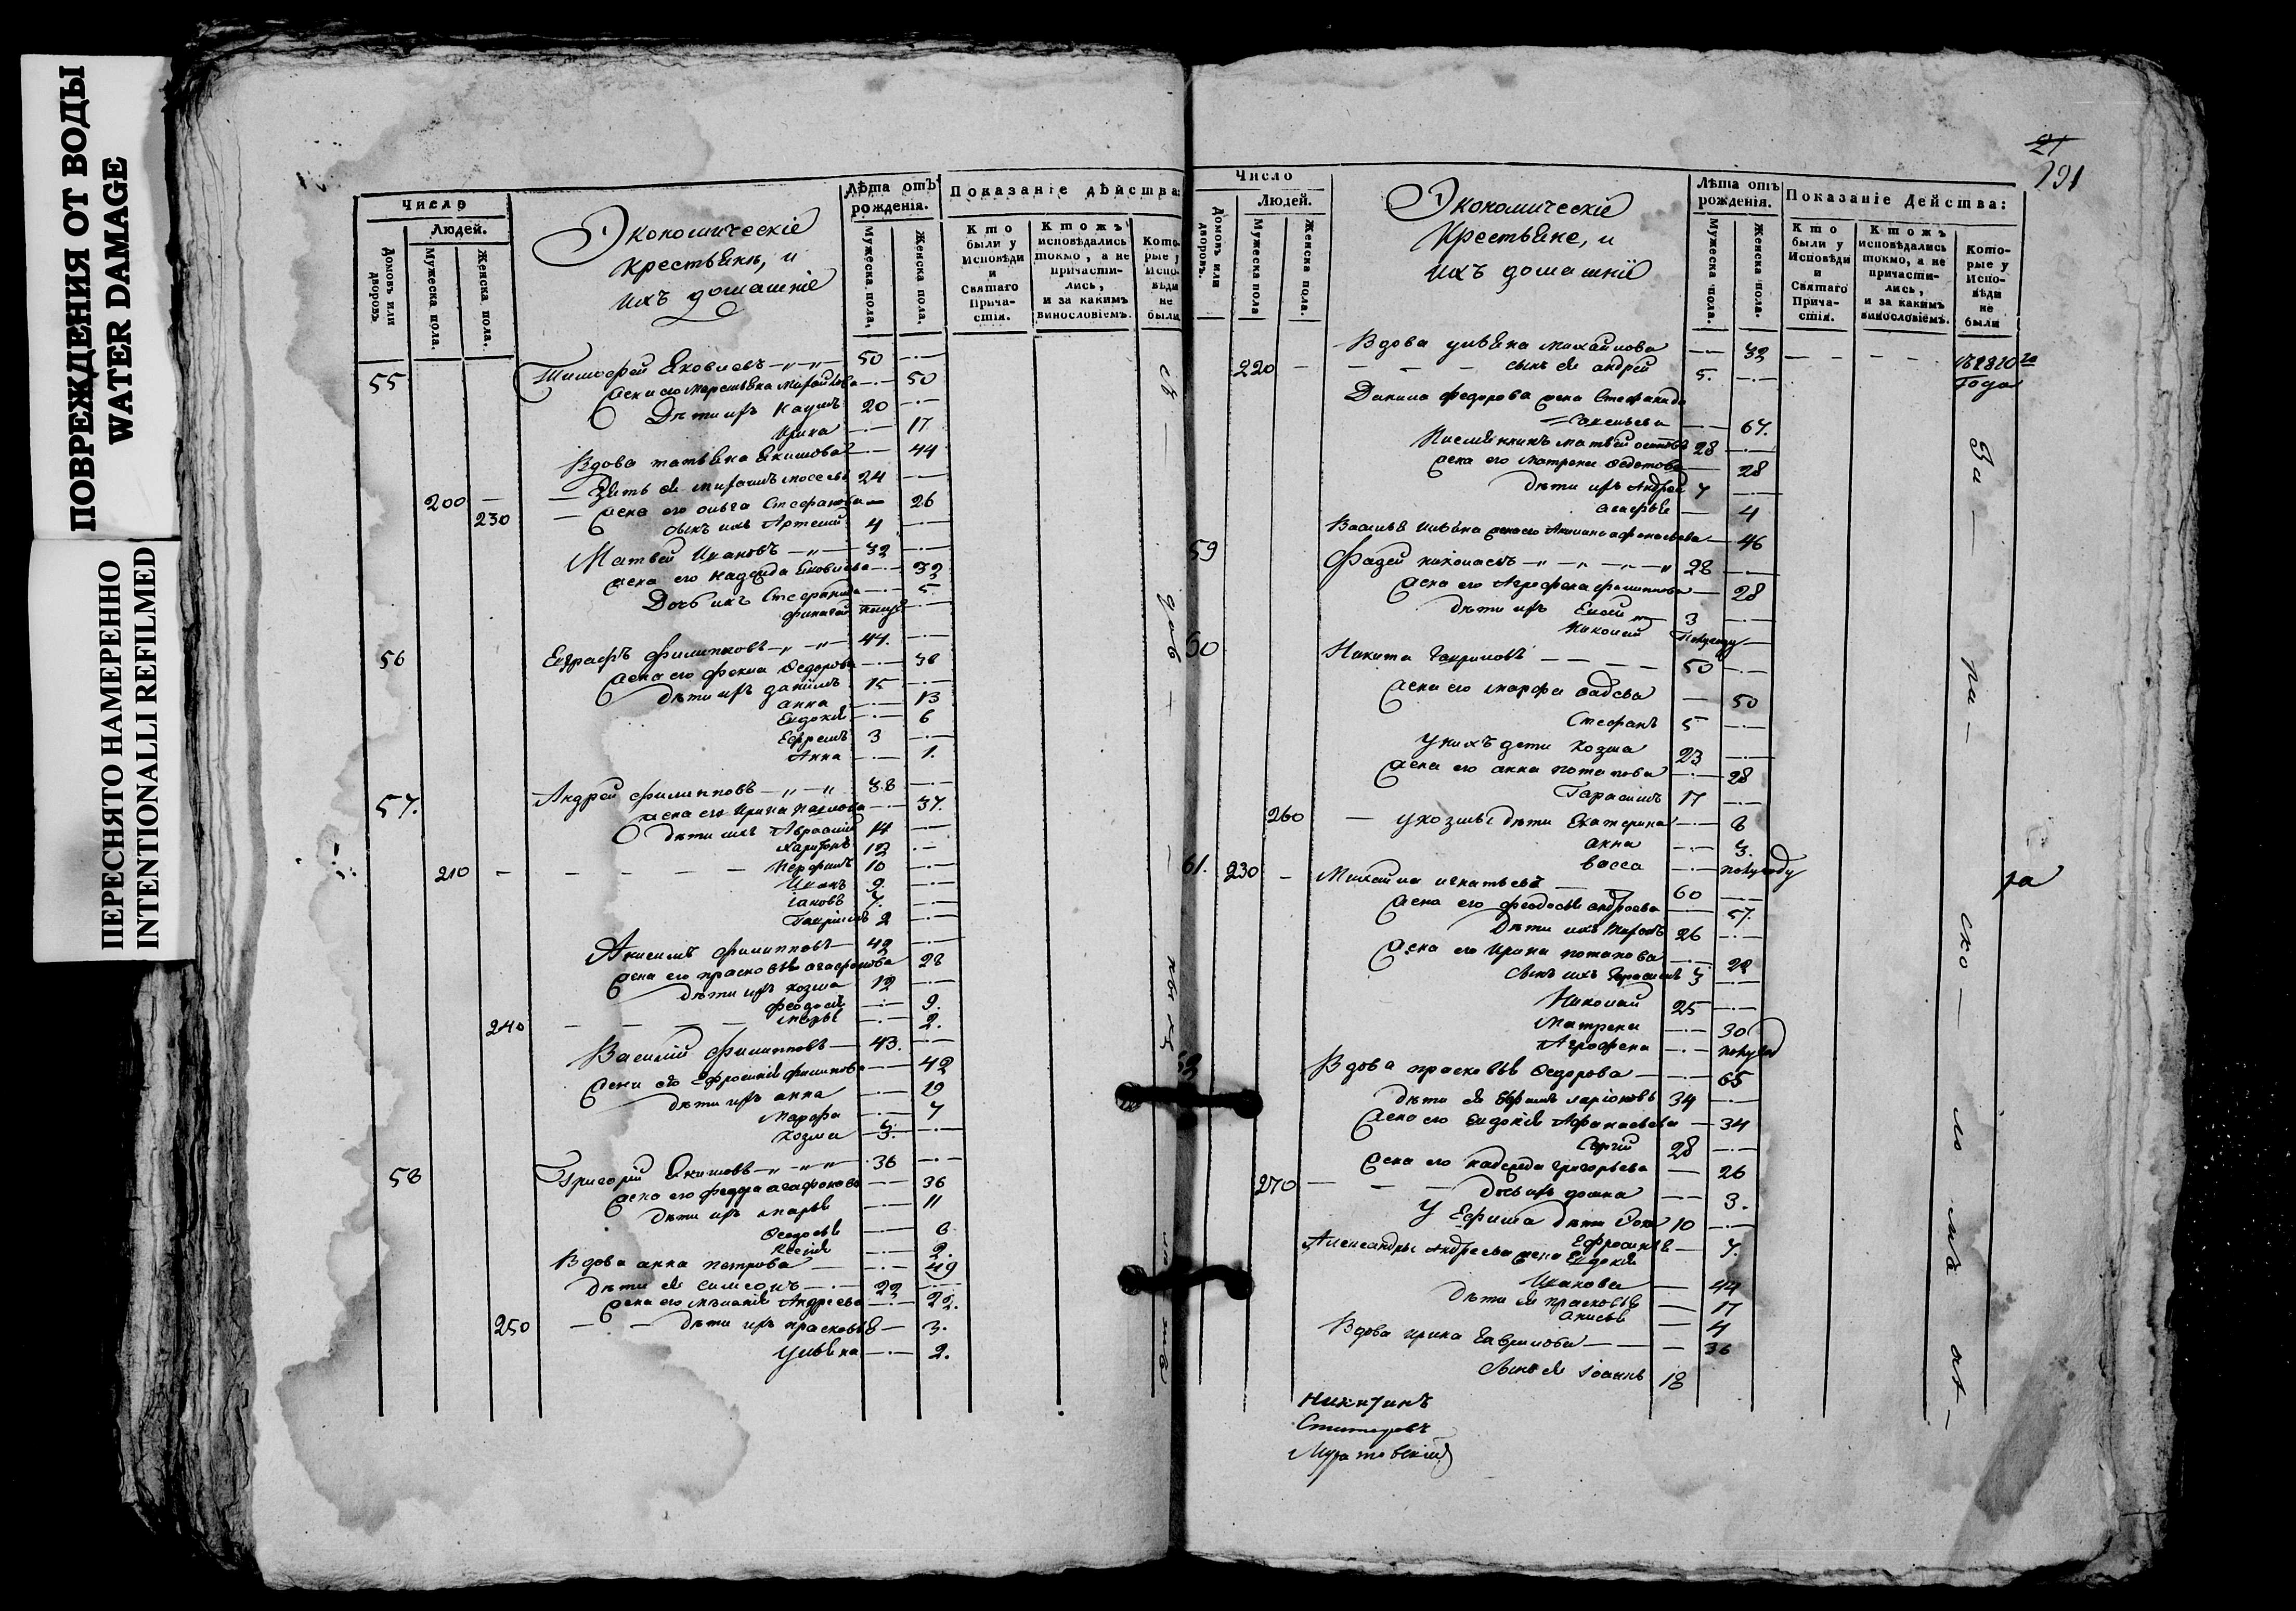 ПОВРЕЖДЕНИЯ ОТ ВОДЫ
WATER DAMAGE
ПЕРЕСНЯТО НАМЕРЕННО
INTENTIONALLI REFILMED
Число
Людей.
Домовъ или дворовъ
Мужеска пола.
Женска пола.
Экономическіе
крестьяне, и
ихъ домашніе
Лѣта отъ рожденія.
Мужеска пола.
Женска пола.
Показаніе дѣйства:
Кто были у Исповѣди и Святаго Прича-стія.
Ктожъ исповѣдались токмо, а не причасти-лись, и за какимъ винословіемъ.
Кото-рые у Испо-вѣди не были
55 Тимофей Яковлевъ 50
жена его Михайлова 50
Дѣти ихъ Наумъ 20
Ирина 17
Вдова татьяна Екимова 44
Зять ея 24
200 230 жена его ольга Стефанова 26
сынъ ихъ Артемий 4
Матвей Ивановъ 32
жена его надежда Яковлева 32
Дочь ихъ Стефанида 5
56 Евграфъ филипповъ 44
жена его фекла Федорова 38
дѣти ихъ данилъ 15
анна 13
Евдокия 6
Ефремъ 3
Анна 1.
57. Андрей филипповъ 38
жена его Ирина Павлова 37.
дѣти ихъ 14
Харитонъ 12
210 Перфилъ 10
Иванъ 9.
Іаковъ 7.
Гаврiилъ 2
Анисимъ филипповъ 42
жена его прасковья агафонова 28
дѣти ихъ козма 12
феодосия 9.
240 марья 2.
Василий филипповъ 43.
жена его Ефросиния филипова 42
дѣти ихъ анна 19
Марфа 7
Козма 3.
58 Григорiй Екимовъ 36
жена его агафонова 36
дѣти ихъ марья 11
Федосья 6
Ксения 2.
Вдова анна петрова 49
дѣти ея симеонъ 22
жена его Андреева 22.
250 дѣти ихъ прасковья 3.
Ульяна 2.
21
191
Число
Людей.
Домовъ или дворовъ.
Мужеска пола
Женска пола.
Экономическіе
Крестьяне, и
ихъ домашніе
Лѣта отъ рожденія.
Мужеска пола.
Женска пола.
Показаніе Дейсква:
Кто были у Исповѣди и Святаго Прича-стія.
Ктожъ исповѣдались токмо, а не причасти-лись, и за какимъ винословіемъ.
Кото-рые у Испо-вѣди не были
Вдова ульяна михайлова 32
220 сынъ ея андрей 5.
года
Данила федорова жена Стефанида
67.
Племянникъ матвей 28
жена его матрена Федотова 28
дѣти ихъ Андрей 7
агафья 4
46
59 Фадей николаевъ 28
жена его Агрофена филиппова 28
дѣти ихъ 3
Николай полугоду
60 Никита Гавриловъ 50
жена его марфа 50
Стефанъ 5
У нихъ дети козма 23
жена его анна потапова 28
Гарасимъ 17
260 у козмы дѣти Екатерина 8
анна 3.
васса полугоду
61. 230 Михайла игнатьевъ 60
жена его феодосья андреева 57.
Дѣти ихъ 26
жена его Ирина потапова 28
сынъ ихъ Герасимъ 3
Николай 25
Матрена 30
Агрофена полугоду
Вдова прасковья Федорова 65
дѣти ея Ефимъ ларионовъ 34
жена его Евдокия Афанасьева 34
Сергий 28
жена его надежда григорьева 26
270 дочь ихъ домна 3.
У Ефима дѣти 10
Ефросинья 7.
Александры Андреева жена Евдокия
Иванова 44
дѣти ея прасковья 17
Анисья 4
Вдова ирина Гаврилова 36
сынъ ея Іоаннъ 18
Никитинъ